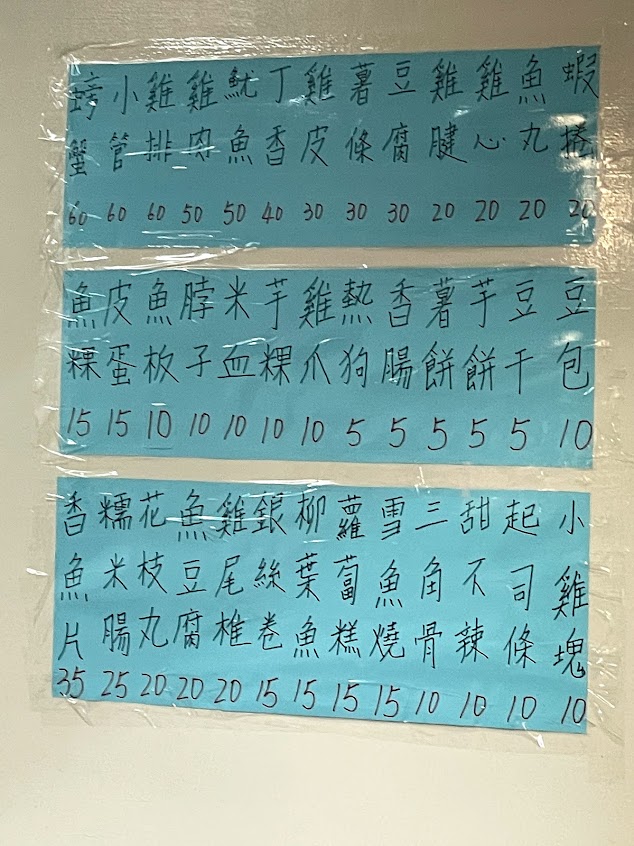 螃蟹60
小管60
雞排60
雞肉50
魷魚50
丁香40
雞皮30
薯條30
豆腐30
雞腱20
雞心20
魚丸20
蝦捲20
魚粿15
皮蛋15
魚板10
脖子10
米血10
芋粿10
雞爪10
熱狗5
香腸5
薯餅5
芋餅5
豆干5
豆包10
香魚片35
糯米腸25
花枝丸20
魚豆腐20
雞尾椎20
銀絲卷15
柳葉魚15
蘿蔔糕15
雪魚燒15
三角骨10
甜不辣10
起司條10
小雞塊10